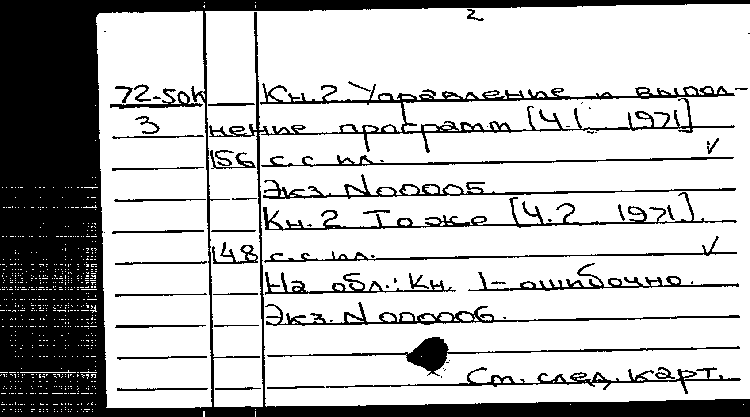 2
72-50к Кн.2 Управление и выпол-
3 нение программ [Ч.1 1971]
156 с. с ил. ✓
Экз. N00005.
Кн. 2 То же [Ч.2 1971].
148 с. с ил. ✓
На обл.: Кн. 1 - ошибочно.
Экз. N000006.
См. след. карт.